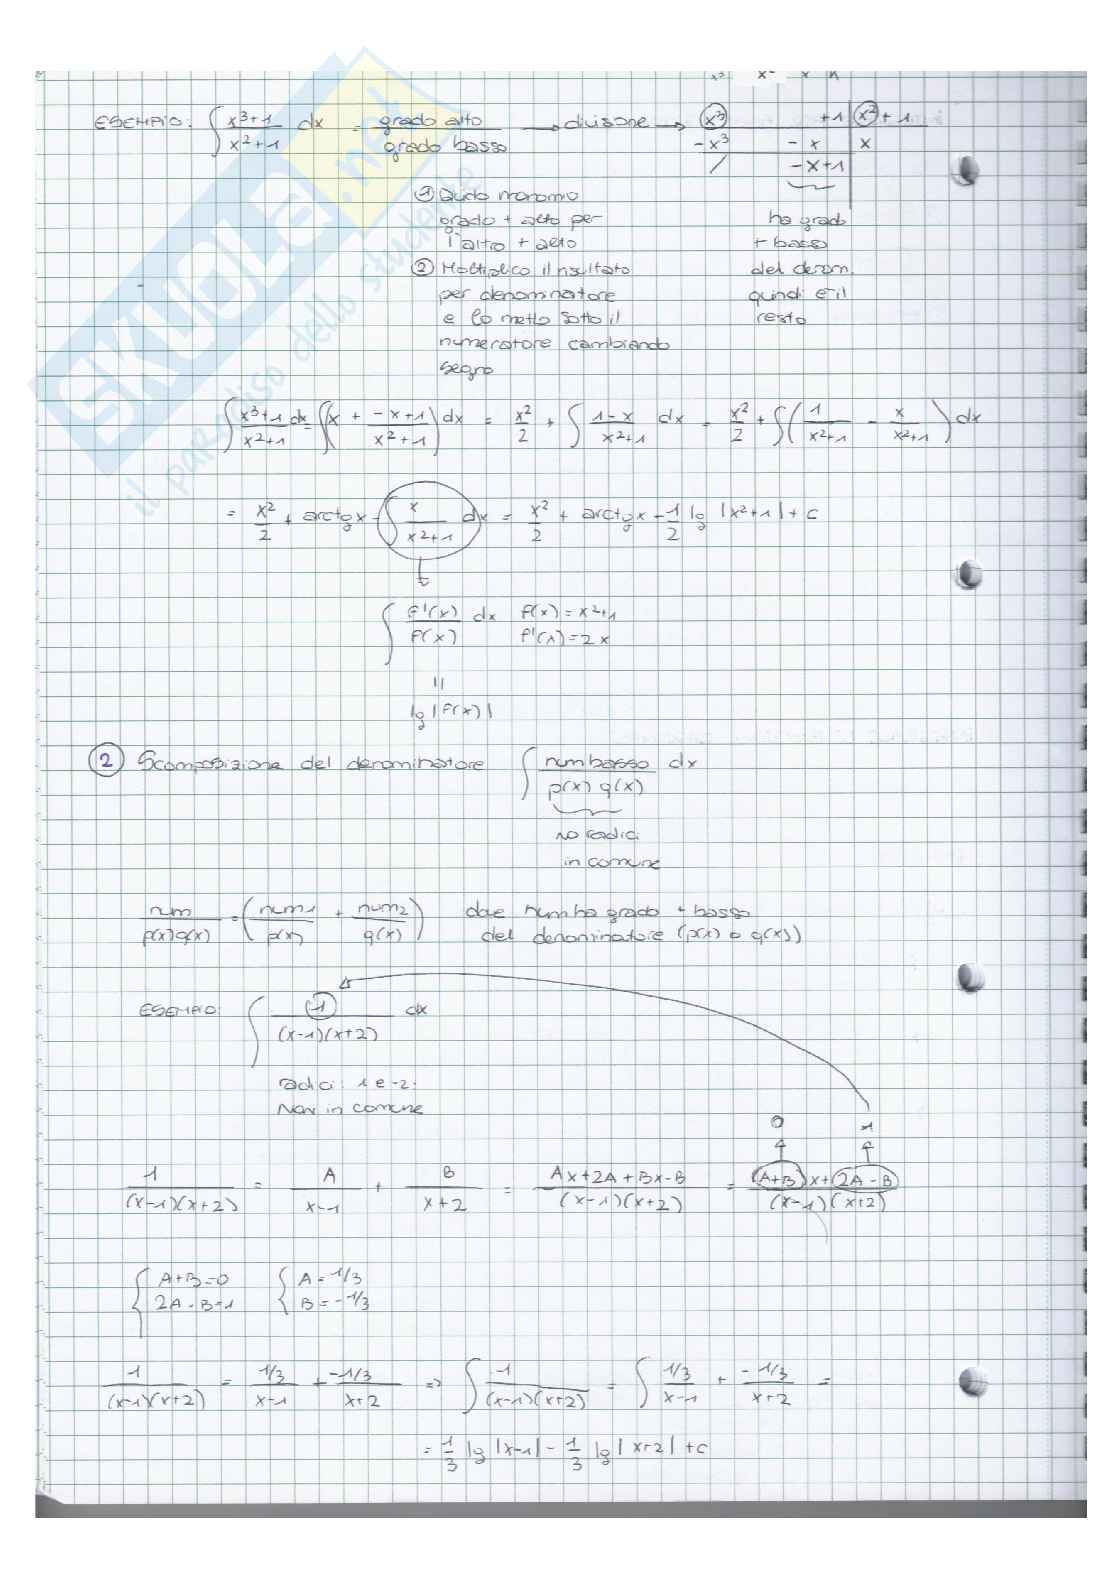 ESEMPIO: ∫ (x³+1)/(x²+1) dx = grado alto / grado basso → divisione → x³ +1 | x²+1
-x³ -x | x
/ -x+1
① Divido monomio
grado + alto per
l'altro + alto
② Moltiplico il risultato
per denominatore
e lo metto sotto il
numeratore cambiando
segno
ha grado
+ basso
del denom.
quindi è il
resto
∫ (x³+1)/(x²+1) dx = ∫ (x + (-x+1)/(x²+1)) dx = x²/2 + ∫ (1-x)/(x²+1) dx = x²/2 + ∫ (1/(x²+1) - x/(x²+1)) dx
= x²/2 + arctg x - ∫ x/(x²+1) dx = x²/2 + arctg x - 1/2 lg |x²+1| + c
∫ f'(x)/f(x) dx f(x) = x²+1
f'(x) = 2x
=
lg |f(x)|
② Scomposizione del denominatore ∫ num basso / p(x) q(x) dx
no radici
in comune
num / p(x)q(x) = (num1 / p(x) + num2 / q(x)) dove num ha grado + basso
del denominatore (p(x) o q(x))
ESEMPIO: ∫ 1 / (x-1)(x+2) dx
radici: 1 e -2.
Non in comune
0 1
1 / (x-1)(x+2) = A / x-1 + B / x+2 = Ax+2A+Bx-B / (x-1)(x+2) = (A+B)x+(2A-B) / (x-1)(x+2)
{ A+B=0 { A=1/3
2A-B=1 B=-1/3
1 / (x-1)(x+2) = 1/3 / x-1 + -1/3 / x+2 => ∫ 1 / (x-1)(x+2) = ∫ 1/3 / x-1 + -1/3 / x+2 =
= 1/3 lg |x-1| - 1/3 lg |x+2| + c
SKUOLA.net
il paradiso dello studente